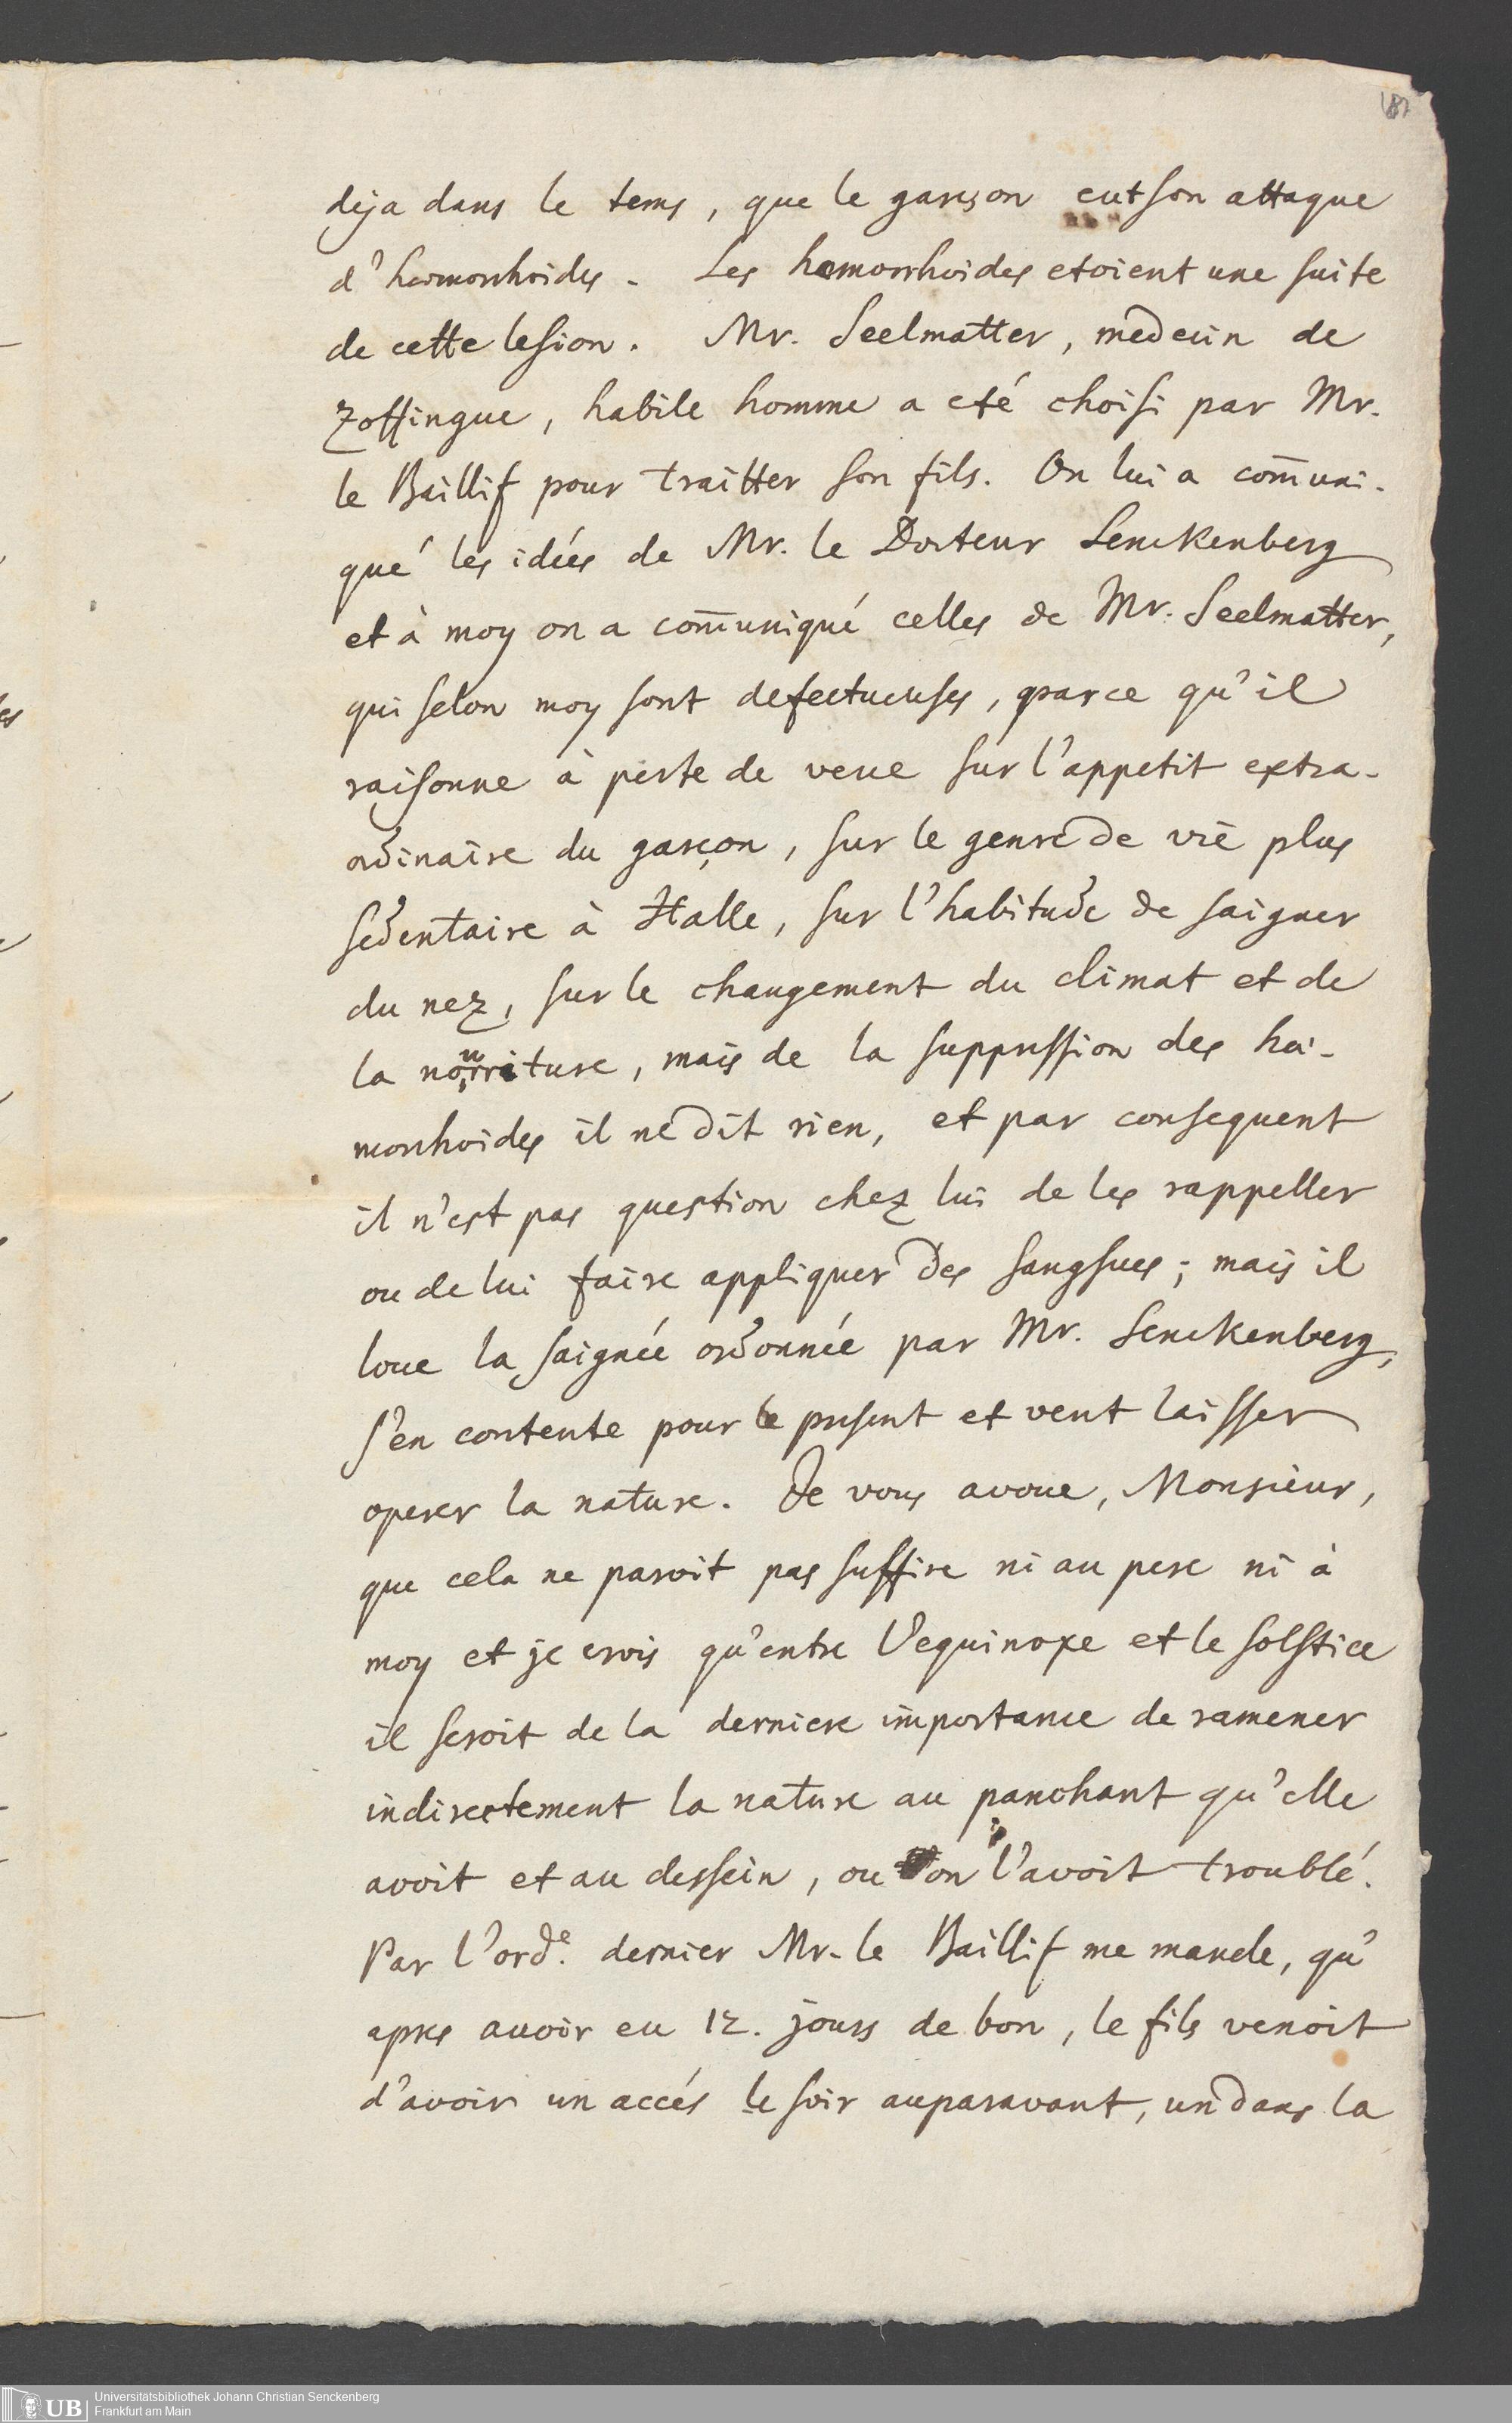 187
deja dans le tems, que le garçon eut son attaque
d'hæmorrhoides. Les hemorrhoides etoient une suite
de cette lesion. Mr. Seelmatter, medecin de
Zoffingue, habile homme a eté choisi par Mr.
le Baillif pour traitter son fils. On lui a com̄uni-
qué les idées de Mr. le Docteur Senckenberg
et à moy on a com̄uniqué celles de Mr. Seelmatter,
qui selon moy sont defectueuses, parce qu'il
raisonne à perte de veue sur l'appetit extra-
ordinaire du garçon, sur le genre de vie plus
sedentaire à Halle, sur l'habitude de saigner
du nez, sur le changement du climat et de
la nourriture, mais de la suppression des hæ-
morrhoides il ne dit rien, et par consequent
il n'est pas question chez lui de les rappeller
ou de lui faire appliquer des sangsues; mais il
loue la saignée ordonnée par Mr. Senckenberg,
s'en contente pour le present et veut laisser
operer la nature. Je vous avoue, Monsieur,
que cela ne paroit pas suffire ni au pere ni à
moy et je crois qu'entre l'equinoxe et le solstice
il seroit de la derniere importance de ramener
indirectement la nature au panchant qu'elle
avoit et au dessein, ou on l'avoit troublé.
Par l'ord.e dernier Mr. le Baillif me mande, qu'
apres avoir eu 12. jours de bon, le fils venoit
d'avoir un accés le soir auparavant, un dans la
UB
Universitätsbibliothek Johann Christian Senckenberg
Frankfurt am Main